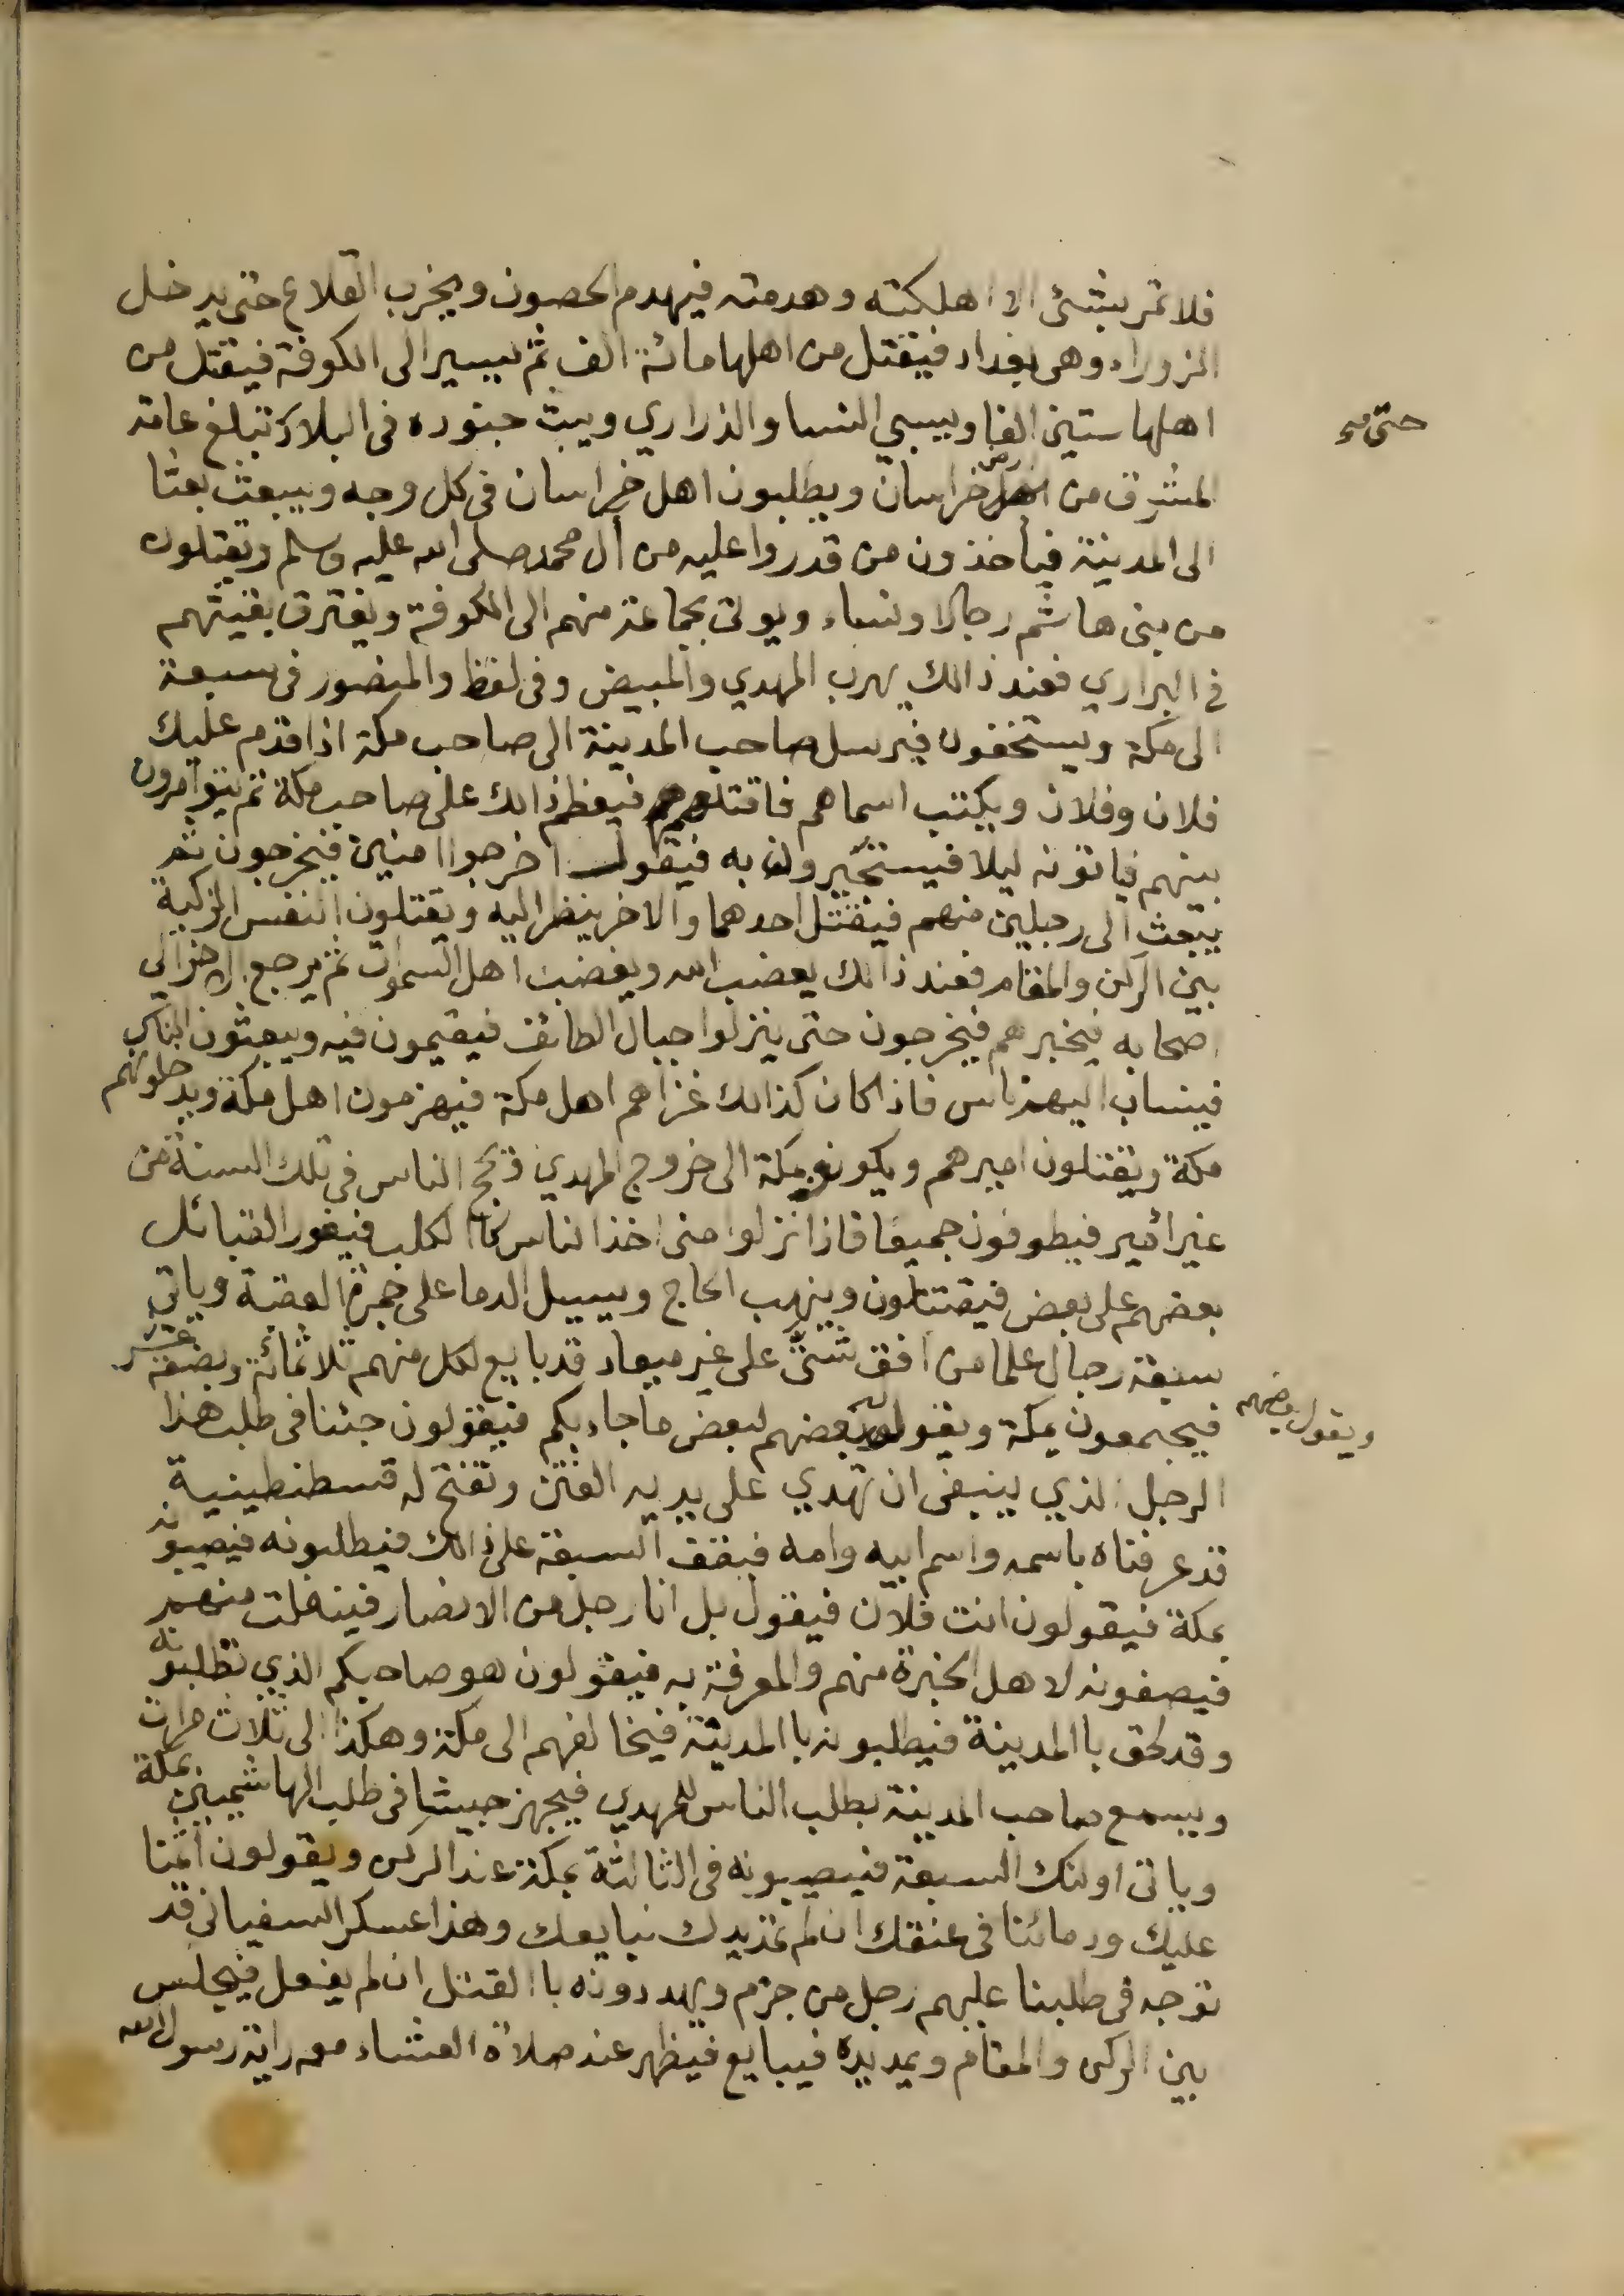 فلا تمر بشئ الا اهلكته وهدمته فيهدم الحصون ويخرب القلاع حتى يدخل
الزوراء وهى بغداد فيقتل من اهلها مائة الف ثم يسير الى الكوفة فيقتل من
اهلها ستين الفا ويسبي النسا والذراري ويبث جنوده فى البلاد تبلغ عامة
حتى
المشرق من ارض خراسان ويطلبون اهل خراسان فى كل وجه ويبعث بعثا
الى المدينة فيأخذون من قدروا عليه من آل محمد صلى الله عليه وسلم ويقتلون
من بنى هاشم رجالا ونساء ويوتى بجماعة منهم الى الكوفة ويفترق بقيتهم
في البراري فعند ذالك يهرب المهدي والمبيض وفى لفظ والمنصور فى سبعة
الى مكة ويستخفون فيرسل صاحب المدينة الى صاحب مكة اذا قدم عليك
فلان وفلان ويكتب اسماهم فاقتلهم فيعظم ذالك على صاحب مكة ثم يتوامرون
بينهم فياتونه ليلا فيستجيرون به فيقول اخرجوا امنين فيخرجون ثم
يبعث الى رجلين منهم فيقتل احدهما والاخر ينظر اليه ويقتلون النفس الزكية
بين الركن والمقام فعند ذالك يغضب الله ويغضب اهل السموات ثم يرجع الاخر الى
اصحابه فيخبرهم فيخرجون حتى ينزلوا جبال الطائف فيقيمون فيه ويبعثون الناس
فينساب اليهم ناس فاذا كان كذالك غزاهم اهل مكة فيهزمون اهل مكة ويدخلونهم
مكة ويقتلون اميرهم ويكونو بمكة الى خروج المهدي ويحج الناس فى تلك السنة من
غير امير فيطوفون جميعا فاذا نزلوا منى اخذ الناس كاا لكلب فيغور القبائل
بعضهم على بعض فيقتتلون وينهب الحاج ويسيل الدما على جمرة العقبة وياتى
سبعة رجال علما من افق شتى على غير ميعاد قد بايع لكل منهم ثلاثمائة وبضعة عشر
فيجمعون بمكة ويقول بعضهم لبعض ما جاء بكم فيقولون جئنا فى طلب هذا
ويقول بعضهم
الرجل الذي ينبغى ان تهدي على يديه الفتن وتفتح له قسطنطينية
قد عرفناه باسمه واسم ابيه وامه فيقف السبعة على ذالك فيطلبونه فيصيبونه
بمكة فيقولون انت فلان فيقول بل انا رجل من الانصار فينفلت منهم
فيصفونه لاهل الخبرة منهم والمعرفة به فيقولون هو صاحبكم الذي تطلبونه
وقد لحق باالمدينة فيطلبونه باالمدينة فيخالفهم الى مكة وهكذا الى ثلاث مرات
ويسمع صاحب المدينة بطلب الناس للمهدي فيجهز جيشا فى طلب الهاشميين بمكة
وياتى اولئك السبعة فيصيبونه فى الثالثة بمكة عند الركن ويقولون اثمنا
عليك ودمائنا فى عنقك ان لم تمد يدك نبايعك وهذا عسكر السفيانى قد
توجه فى طلبنا عليهم رجل من جرم ويهددونه باالقتل ان لم يفعل فيجلس
بين الركن والمقام ويمد يده فيبايع فيظهر عند صلاة العشاء معه راية رسول الله